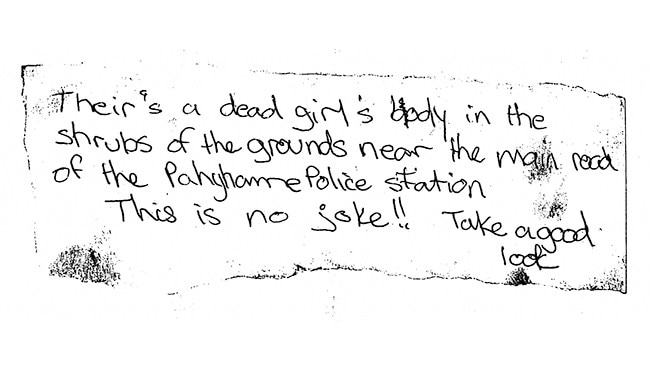 Their's a dead girl's body in the
shrubs of the grounds near the main road
of the Pahyhanne Police station
This is no joke!! Take a good
look